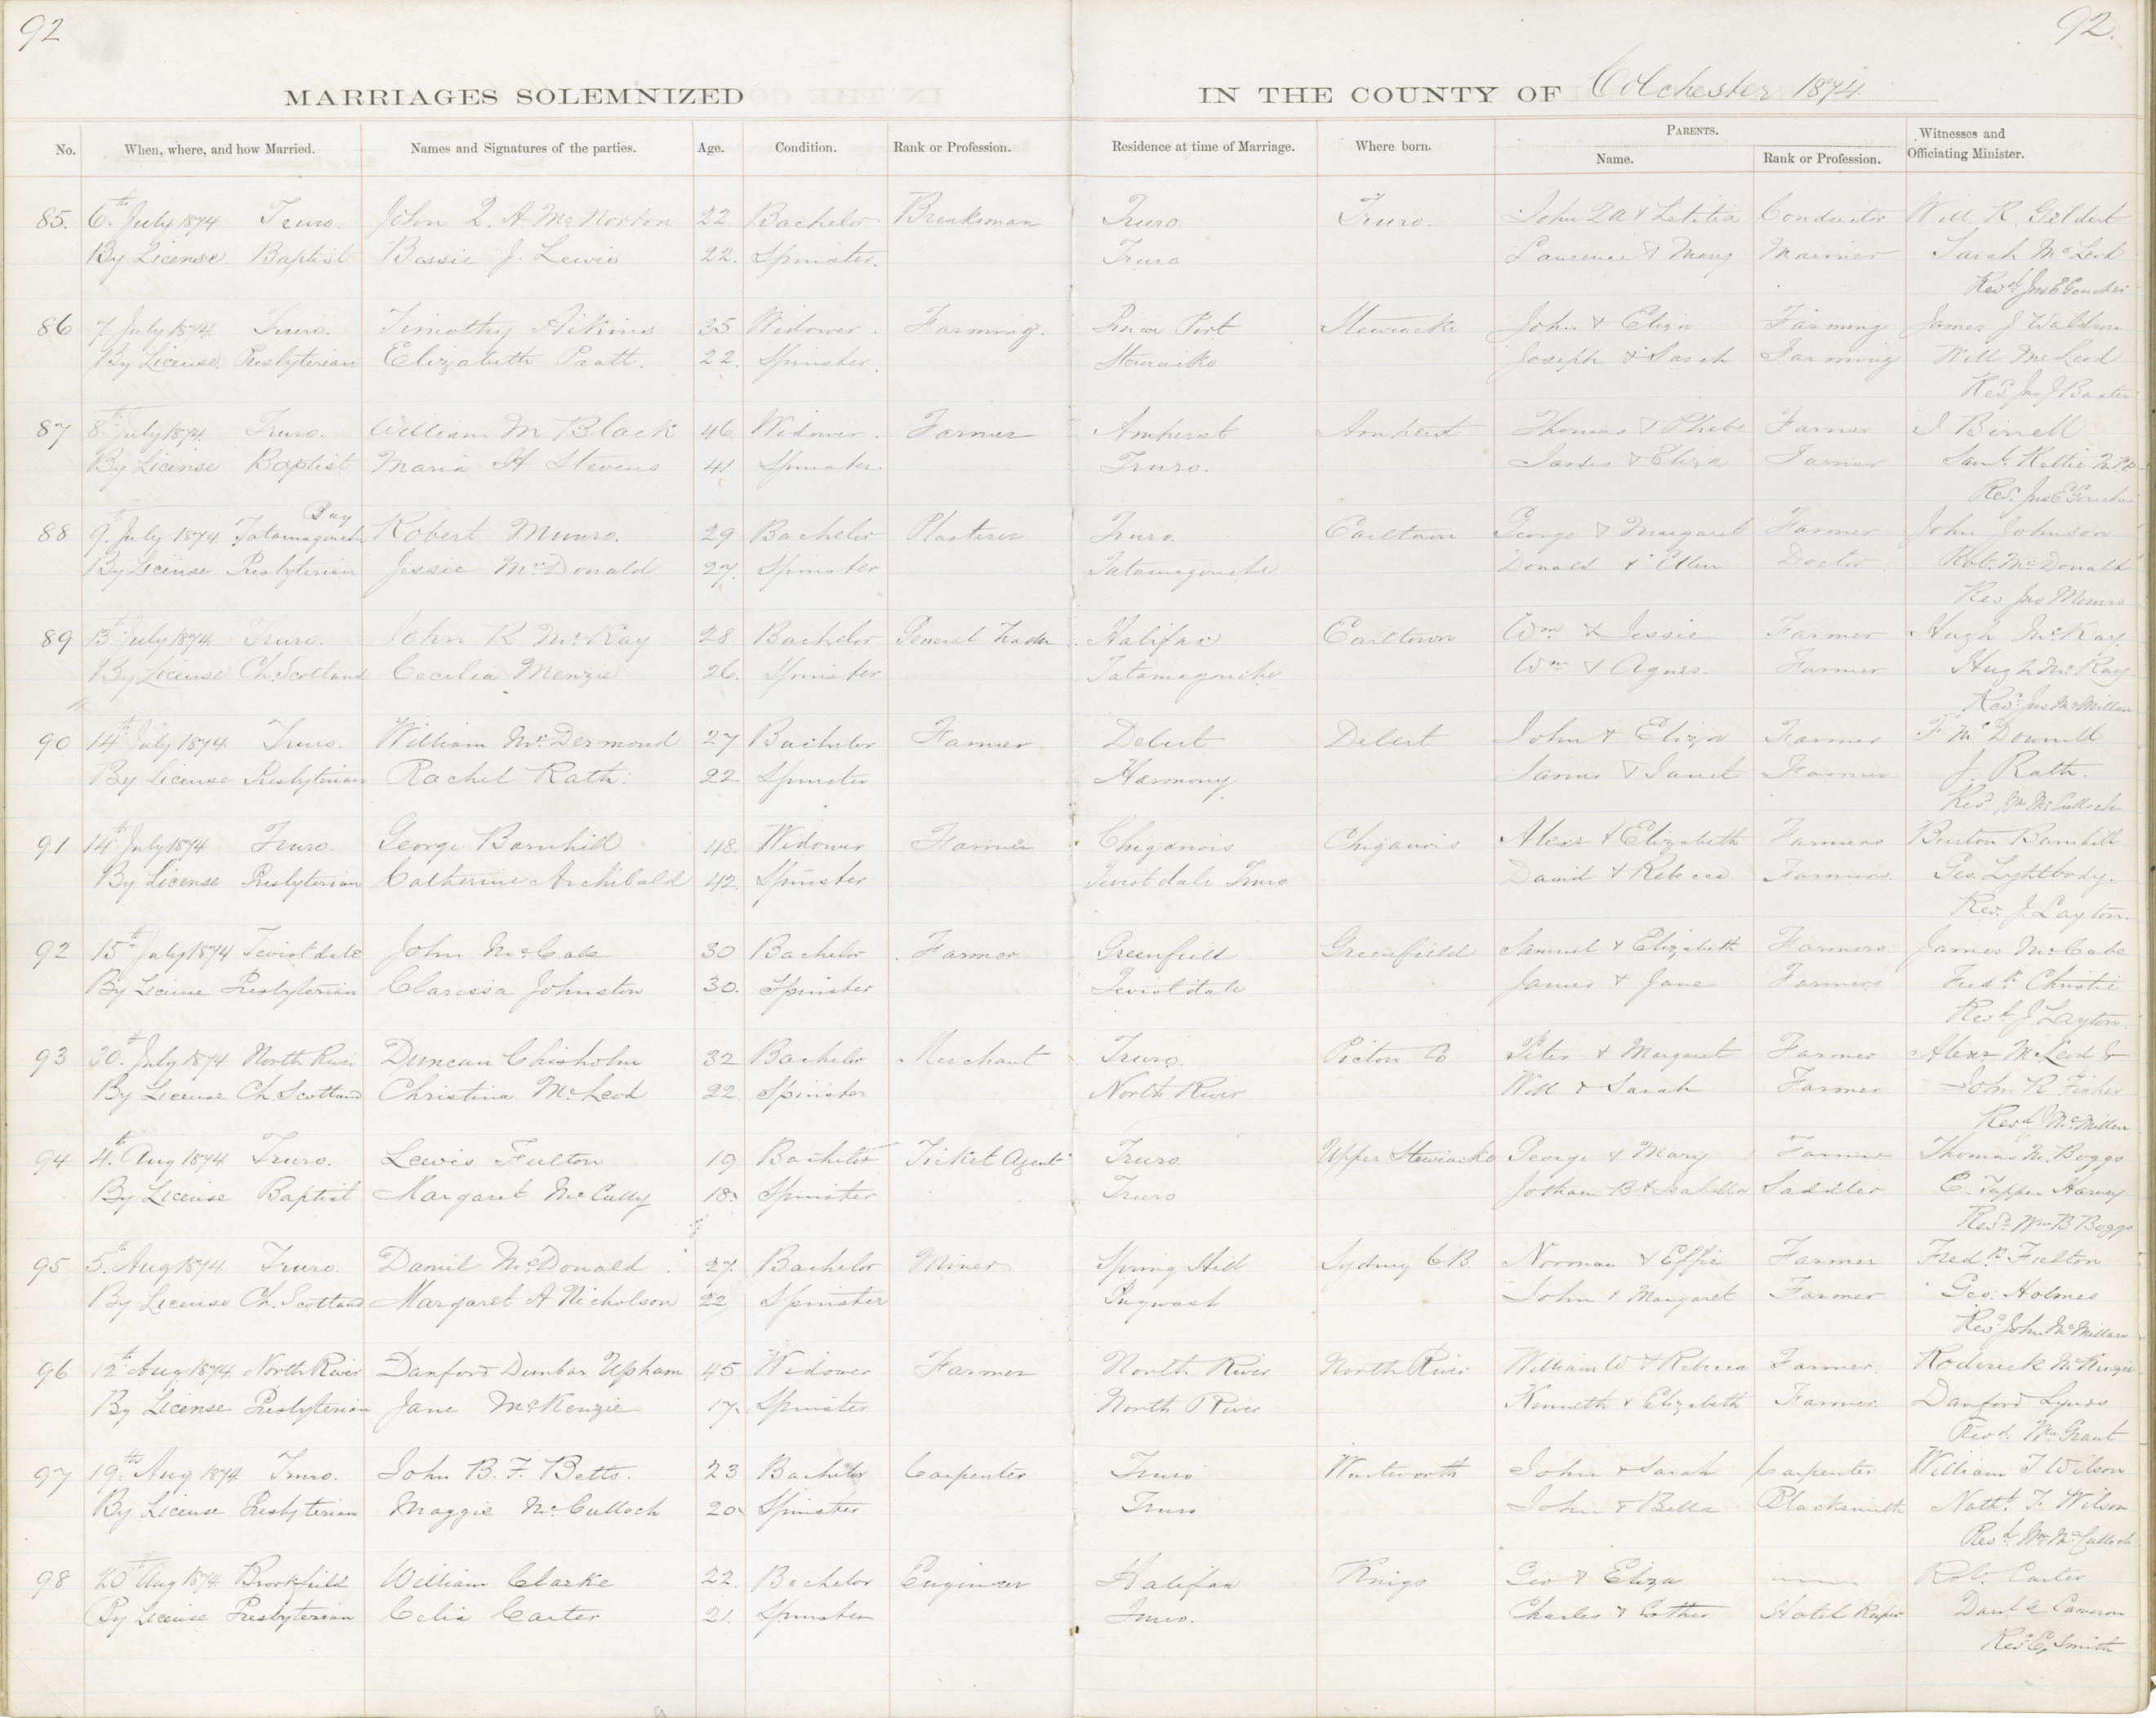 92
92.
MARRIAGES SOLEMNIZED IN THE COUNTY OF Colchester 1874.
No. When, where, and how Married. Names and Signatures of the parties. Age. Condition. Rank or Profession. Residence at time of Marriage. Where born. PARENTS. Name. Rank or Profession. Witnesses and Officiating Minister.
85. 6th July 1874 Truro. John Q. A. McNorton 22 Bachelor Breaksman Truro. Truro. John QA & Letitia Conductor Will R. Gildert
By License Baptist Bessie J. Lewis 22. Spinster. Truro Laurence & Mary Mariner Sarah McLeod
Revd Jno E Goucher
86 7 July 1874. Truro. Timothy Aikins 35 Widower. Farming. Port Stewiacke John & Eliza Farming James J Waldron
By License. Presbyterian Elizabeth Pratt. 22. Spinster. Stewiacke Joseph & Sarah Farming Will McLeod
Revd Jno J Baxter
87 8th July 1874. Truro. William M Black 46 Widower. Farmer Amherst Amherst Thomas & Phebe Farmer J Birrell
By License Baptist Maria H Stevens 41 Spinster. Truro. James & Eliza Farmer Saml Rettie
Revd Jno E Goucher
88 9th July 1874. Tatamagouche Bay Robert Munro. 29 Bachelor Plasterer Truro. Earltown George & Margaret Farmer John Johnson
By License Presbyterian Jessie McDonald 27. Spinster Tatamagouche Donald & Ellen Doctor Rob. McDonald
Rev Jno Munro
89 13th July 1874. Truro. John R McKay 28 Bachelor General Trader Halifax Earltown Wm & Jessie Farmer Hugh McKay
By License Ch. Scotland Cecilia Menzie 26. Spinster Tatamagouche Wm & Agnes. Farmer Hugh McKay
Revd Jno McMillan
90 14th July 1874. Truro. William McDermond 27 Bachelor Farmer Debert Debert John & Eliza Farmer F McDonnell
By License Presbyterian Rachel Rath. 22 Spinster Harmony James & Janet Farmer J. Rath.
Revd Wm McCulloch
91 14th July 1874 Truro. George Barnhill 48. Widower Farmer Chiganois Chiganois Alexr & Elizabeth Farmers Burton Barnhill
By License Presbyterian Catherine Archibald 42 Spinster Teviotdale Truro David & Rebecca Farmers. Geo. Lightbody.
Rev. J. Layton.
92 15th July 1874 Teviotdale John McCabe 30 Bachelor Farmer Greenfield Greenfield Samuel & Elizabeth Farmers James McCabe
By License Presbyterian Clarissa Johnston 30. Spinster Teviotdale James & Jane Farmers Fredk Christie
Revd J Layton
93 30th July 1874 North River Duncan Chisholm 32 Bachelor Merchant Truro. Pictou Co Peter & Margaret Farmer Alexr McLeod Jr
By License Ch. Scotland Christina McLeod 22 Spinster North River Will & Sarah Farmer John R Fisher
Revd J McMillan
94 4th Aug 1874 Truro. Lewis Fulton 19 Bachelor Ticket Agent Truro Upper Stewiacke George & Mary Farmer Thomas M. Boggs
By License Baptist Margaret McCully 18. Spinster Truro Jotham B & Isabella Saddler E. Tupper Harvey
Revd Wm B Boggs
95 5th Aug 1874 Truro. Daniel McDonald 27. Bachelor Miner Spring Hill Sydney C B. Norman & Effie Farmer Fredk Fulton
By License Ch. Scotland Margaret A Nicholson 22 Spinster Pugwash John & Margaret Farmer Geo. Holmes
Revd John McMillan
96 12th Aug 1874. North River Danford Dunbar Upham 45 Widower Farmer North River North River William W & Rebecca Farmer. Roderick McKenzie
By License Presbyterian Jane McKenzie 17. Spinster North River Kenneth & Elizabeth Farmer. Danford Lynds
Revd Wm Grant
97 19th Aug 1874. Truro. John B. F. Betts. 23 Bachelor Carpenter Truro Wentworth John & Sarah Carpenter William T Wilson
By License Presbyterian Maggie McCulloch 20 Spinster Truro John & Bella Blacksmith Nathl T. Wilson
Revd Wm McCulloch
98 20th Aug 1874. Brookfield William Clarke 22. Bachelor Engineer Halifax Kings Geo & Eliza Rob. Carter
By License Presbyterian Celia Carter 21. Spinster Truro. Charles & Esther Hotel Keeper Danl A Cameron
Revd E Smith